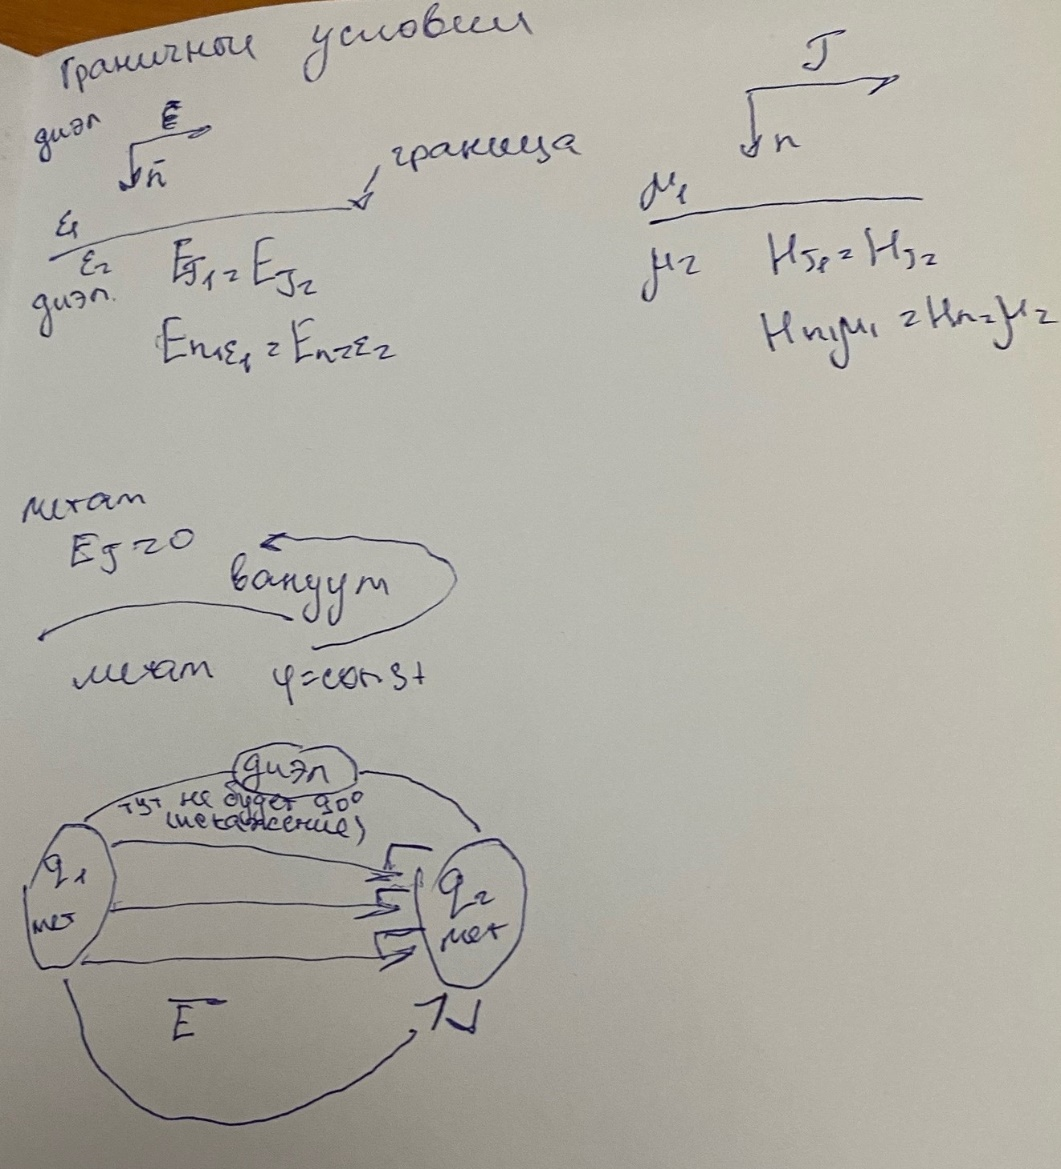 Граничные условия
диэл Ē
n̄
граница
ε1
ε2
диэл.
EJ1 = EJ2
En1ε1 = En2ε2
J
n
μ1
μ2
HJ1 = HJ2
Hn1μ1 = Hn2μ2
метал
EJ = 0
вакуум
метал φ=const
диэл
тут не будет 90°
(искажение)
q1
мет
q2
мет
E̅